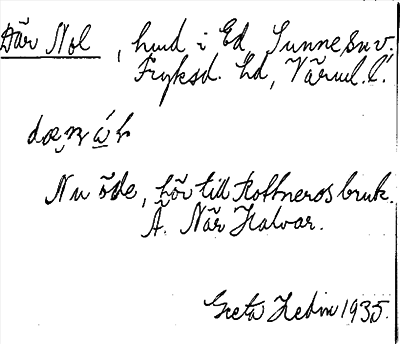 Där Nol, hmd i Ed, Sunne sn v.
Fryksd. hd, Värml. l.
Nu öde, hör till Rottneros bruk.
Å. När Halvar.
Greta Hedin 1935.